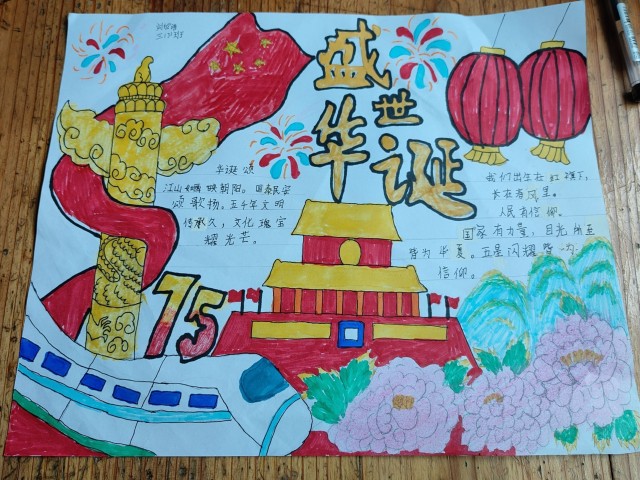 三(7)班
盛世
华诞
华诞颂
江山如画映朝阳。国泰民安
颂歌扬。五千年文明
传承久，文化瑰宝
耀光芒。
75
我们出生在红旗下，
长在春风里。
人民有信仰。
国家有力量，目光所至
皆为华夏。五星闪耀皆为
信仰。